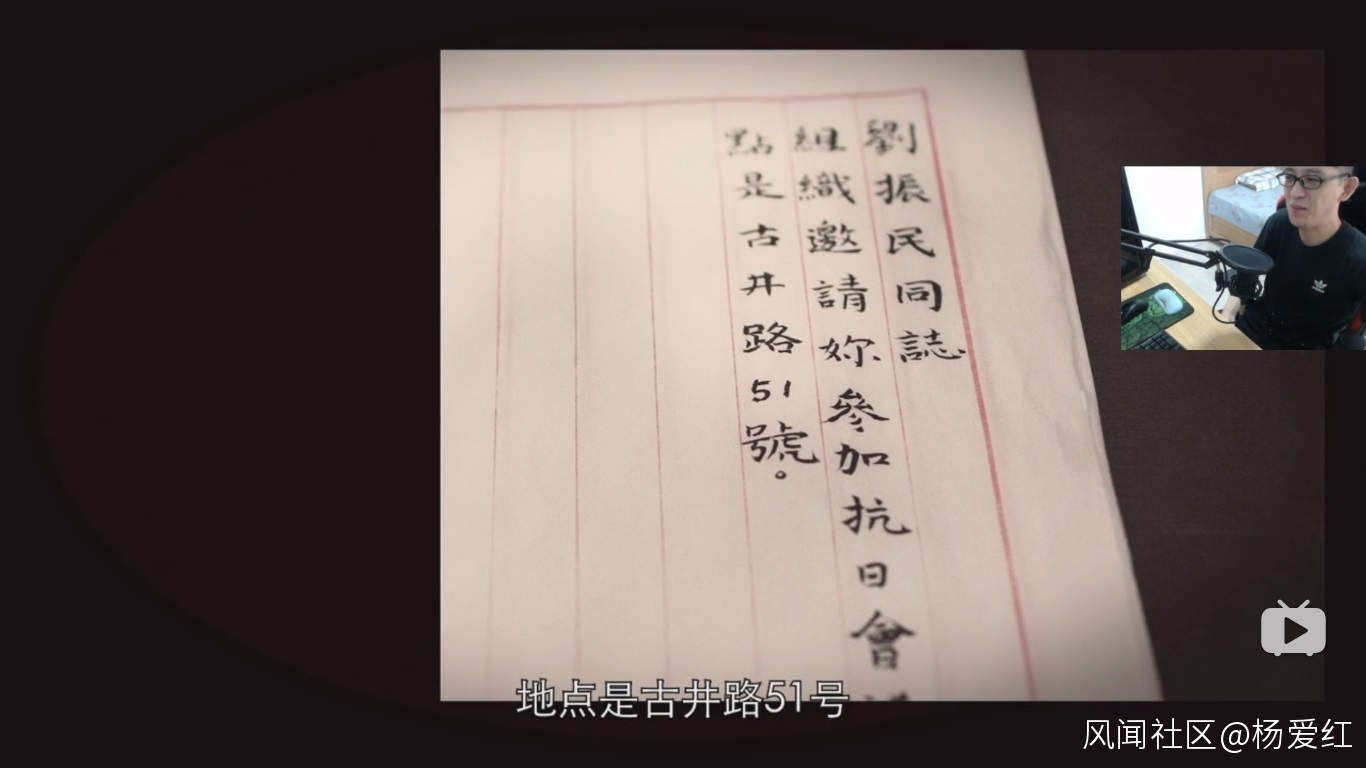 劉振民同誌
組織邀請妳參加抗日會
點是古井路51號。
地点是古井路51号
风闻社区@杨爱红